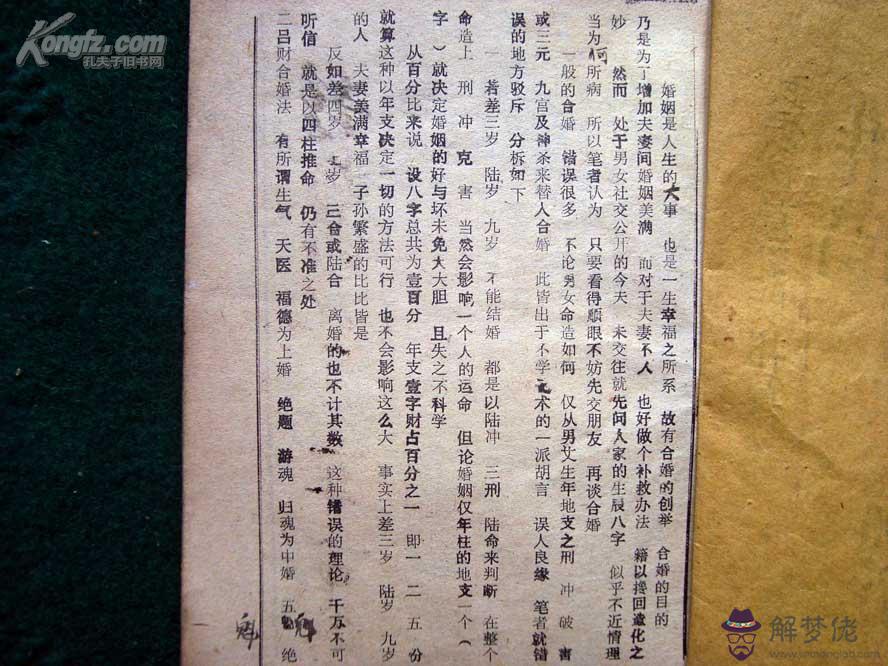 婚姻是人生的大事 也是一生幸福之所系 故有合婚的创举 合婚的目的
乃是为增加夫妻间婚姻美满 而对于夫妻不人 也好做个补救办法 籍以搀回造化之
妙 然而 处于男女社交公开的今天 未交往就先问人家的生辰八字 似乎不近情理
当为何所病 所以笔者认为 只要看得顺眼不妨先交朋友 再谈合婚
一般的合婚 错误很多 不论男女命造如何 仅从男女生年地支之刑 冲 破 害
或三元 九宫及神杀来替人合婚 此皆出于不学无术的一派胡言 误人良缘 笔者就错
误的地方驳斥 分析如下
一 若差三岁 陆岁 九岁 不能结婚 都是以陆冲 三刑 陆命来判断 在整个
命造上 刑 冲 克 害 当然会影响一个人的运命 但论婚姻仅年柱的地支一个（
字 ）就决定婚姻的好与坏未免大大胆 且失之不科学
从百分比来说 设八字总共为壹百分 年支壹字财占百分之一 即一 二 五 份
就算这种以年支决定一切的方法可行 也不会影响这么大 事实上差三岁 陆岁 九岁
的人 夫妻美满幸福 子孙繁盛的比比皆是
反如差四岁 岁 三合或陆合 离婚的也不计其数 这种错误的理论 千万不可
听信 就是以四柱推命 仍有不准之处
二吕财合婚法 有所谓生气 天医 福德为上婚 绝题 游魂 归魂为中婚 五 绝
魁
Kongfz.com
孔夫子旧书网
解梦佬